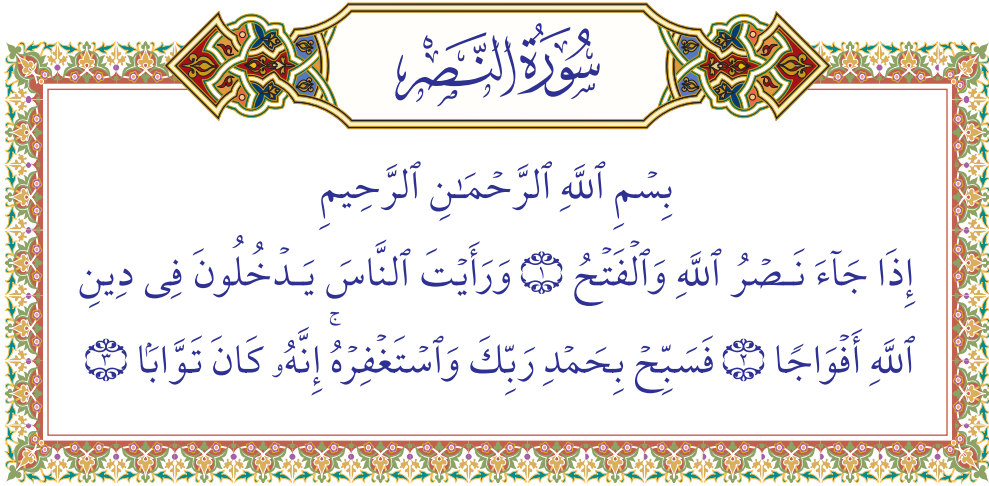 سُورَةُ النَّصْرِ
بِسۡمِ ٱللَّهِ ٱلرَّحۡمَـٰنِ ٱلرَّحِيمِ
إِذَا جَاۤءَ نَـصۡرُ ٱللَّهِ وَٱلۡفَتۡحُ ۝١ وَرَأَيۡتَ ٱلنَّاسَ يَـدۡخُلُونَ فِی دِينِ
ٱللَّهِ أَفۡوَاجࣰا ۝٢ فَسَبِّحۡ بِحَمۡدِ رَبِّكَ وَٱسۡتَغۡفِرۡهُۚ إِنَّهُۥ كَانَ تَوَّابَۢا ۝٣